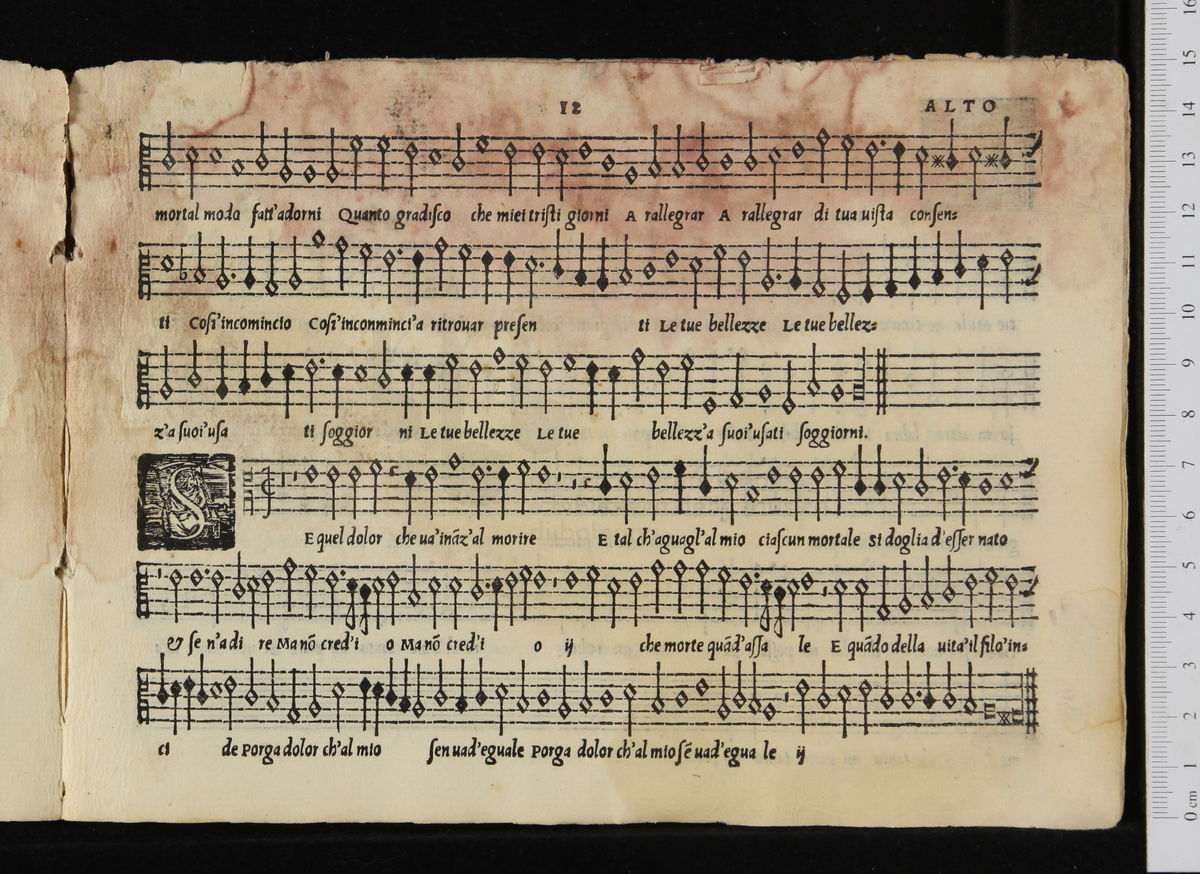 12 ALTO
mortal modo fatt'adorni Quanto gradiſco che miei triſti giorni A rallegrar A rallegrar di tua uiſta conſen=
ti Coſi'incomincio Coſi'inconminci'a ritrouar preſen ti Le tue bellezze Le tue bellez=
z'a ſuoi'uſa ti ſoggior ni Le tue bellezze Le tue bellezz'a ſuoi'uſati ſoggiorni.
S E quel dolor che ua'inãz'al morire E tal ch'aguagl'al mio ciaſcun mortale Si doglia d'eſſer nato
& ſe n'a di re Ma nõ cred'i o Ma nõ cred'i o ij che morte quãd'aſſa le E quãdo della uita'il filo'in=
ci de Porga dolor ch'al mio ſen uad'eguale Porga dolor ch'al mio ſẽ uad'egua le ij
0 cm 1 2 3 4 5 6 7 8 9 10 11 12 13 14 15 16